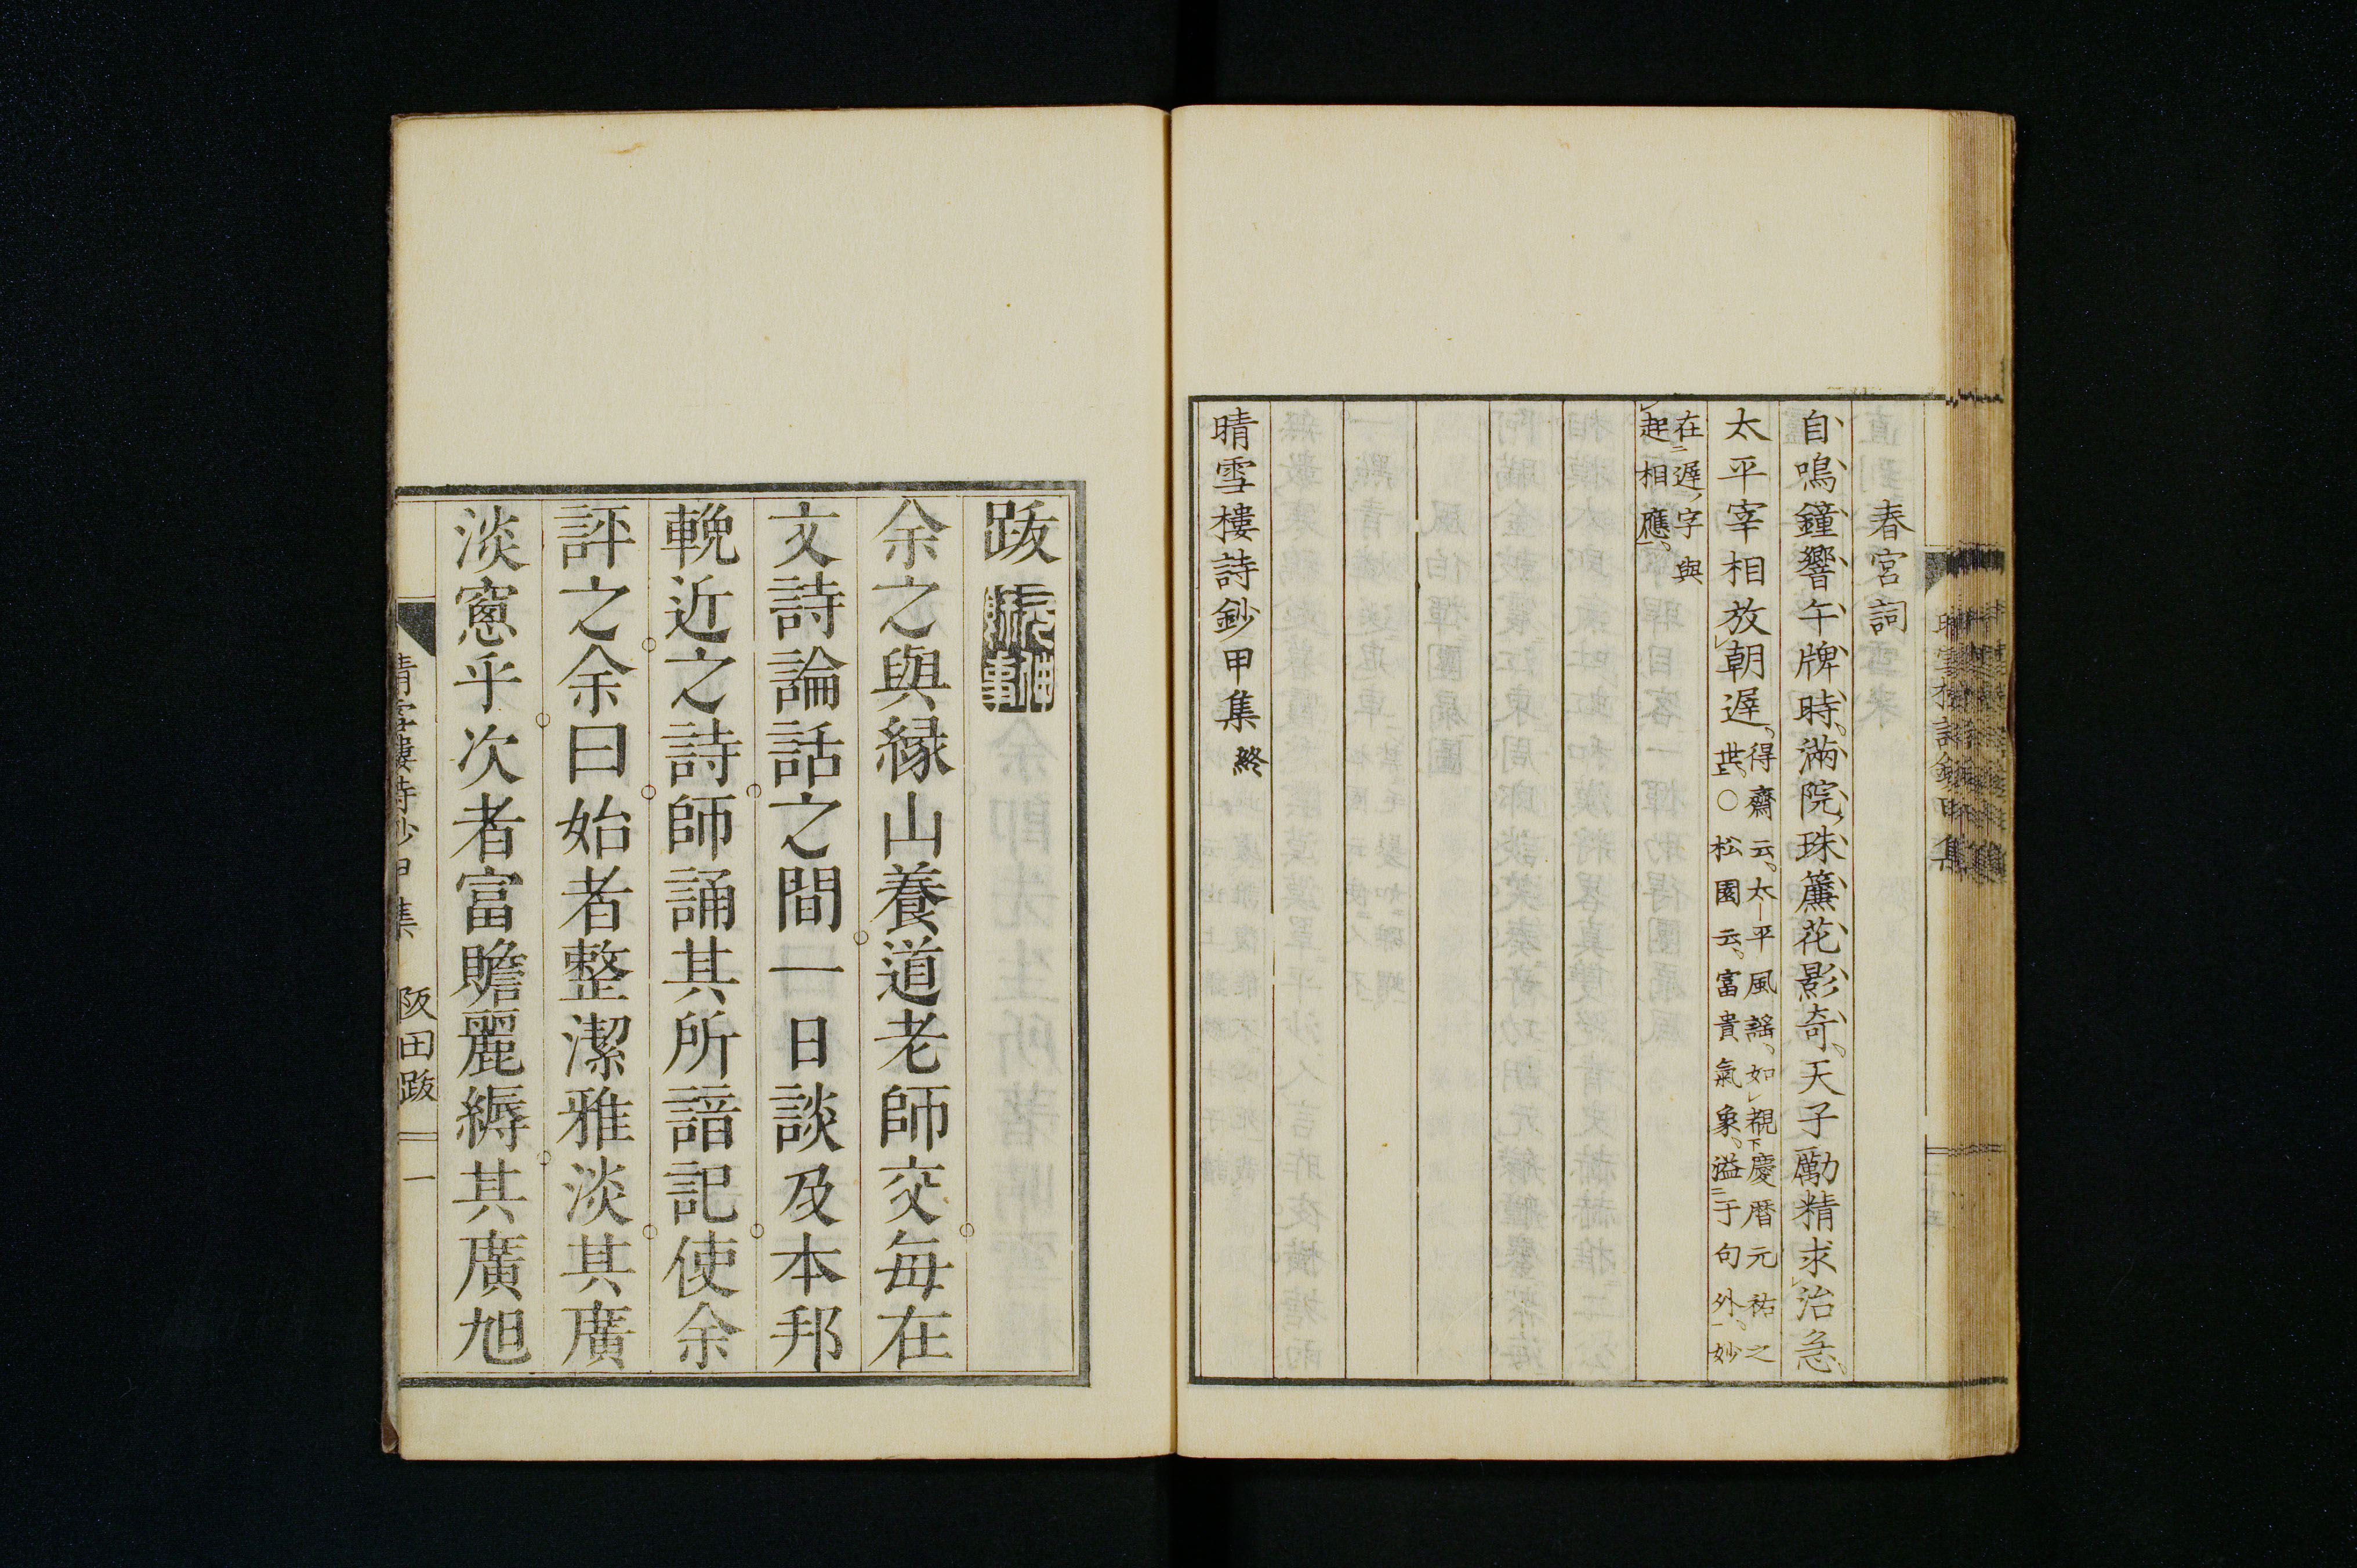 春宮詞
自鳴鐘響午牌時。滿院珠簾花影奇。天子勵精求治急。
太平宰相放朝遲。得齋云。太平風謠、如覩慶曆元祐之
世。○松園云、富貴氣象、溢于句外、妙
在遲字與
起相應、
晴雪樓詩鈔甲集 終
跋
余之與緣山養道老師交每在
文詩論話之間一日談及本邦
輓近之詩師誦其所諳記使余
評之余曰始者整潔雅淡其廣
淡窻乎次者富贍麗縟其廣旭
晴雪樓詩鈔甲集 阪田跋 一